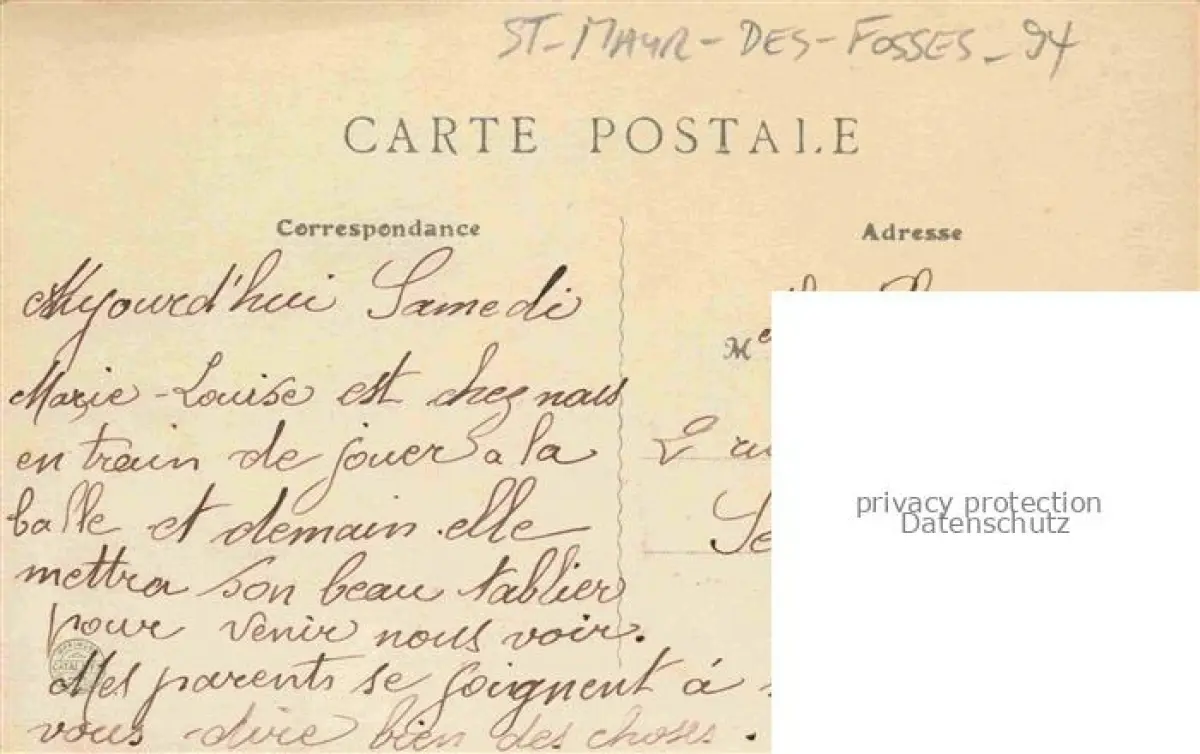 ST-MAUR-DES-FOSSES-94
CARTE POSTALE
Correspondance
Adresse
Aujourd'hui Samedi
Marie-Louise est chez nous
en train de jouer a la
balle et demain elle
mettra son beau tablier
pour venir nous voir.
Mes parents se joignent à
vous dire bien des choses.
M
2
privacy protection
Datenschutz